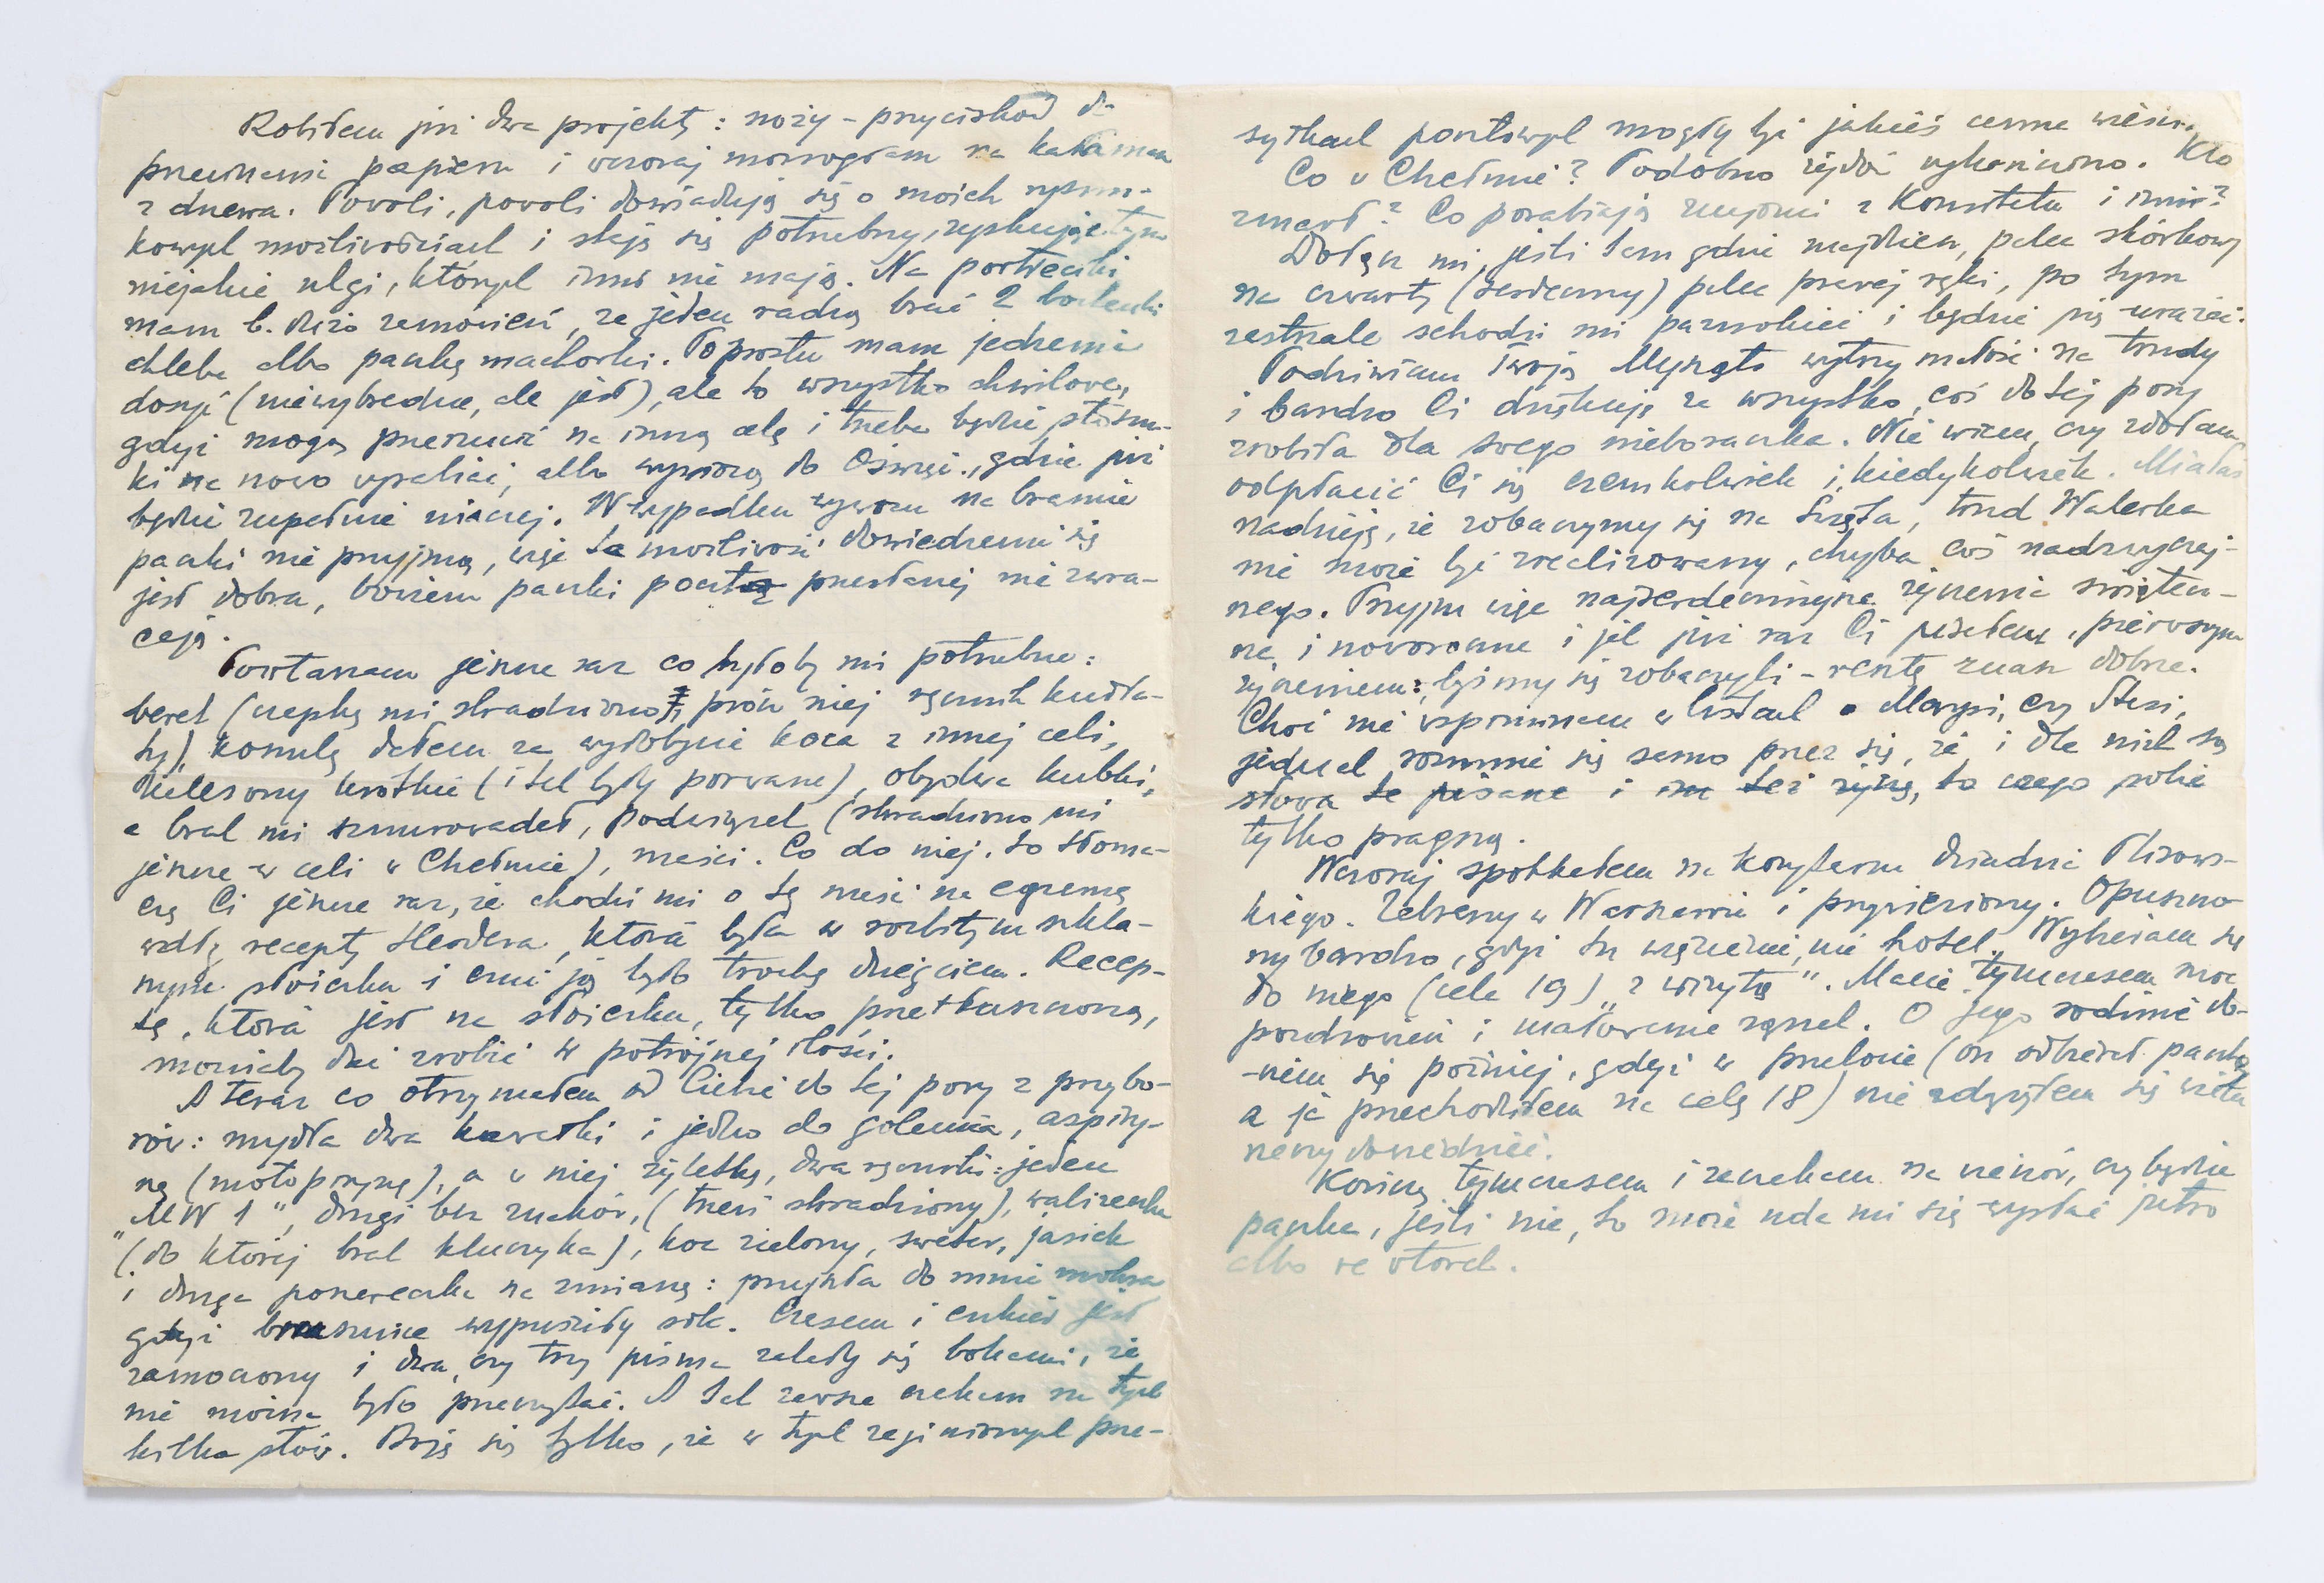 Robiłem już dwa projekty: noży - przycisków do
przecinania papieru i wczoraj monogram na kałamarz
z drzewa. Powoli, powoli dowiadują się o moich rysun-
kowych możliwościach i staję się potrzebny, zyskując tym
niejakie ulgi, których inni nie mają. Na portreciki
mam b. dużo zamówień, za jeden radzą brać 2 bochenki
chleba albo paczkę machorki. Poprostu mam jedzenia
dosyć (niewybredne, ale jest), ale to wszystko chwilowe,
gdyż mogą przerzucić na inną celę i trzeba będzie stosun-
ki na nowo wyrabiać, albo wywiozą do Oświęc., gdzie już
będzie zupełnie inaczej. W wypadku wywozu na bramie
paczki nie przyjmą, więc ta możliwość dowiedzenia się
jest dobra, bowiem paczki pocztą przesłanej nie zwra-
cają.
Powtarzam jeszcze raz co byłoby mi potrzebne:
beret (czapkę mi skradziono i prócz niej ręcznik kudła-
ty), koszulę dałem za wydobycie koca z innej celi,
kalesony krótkie (i tak były porwane), obydwa kubki,
a brak mi sznurowadeł, podwiązek (skradziono mi
jeszcze w celi w Chełmie), maści. Co do niej, to tłoma-
czę Ci jeszcze raz, że chodzi mi o tę maść na egzemę
wdłg recepty Heodera, która była w rozbitym szkla-
nym słoiczku i czuć ją było trochę dziegciem. Recep-
tę, która jest na słoiczku, tylko przetłuszczoną,
monicby dać zrobić w potrójnej ilości.
A teraz co otrzymałem od Ciebie do tej pory z przybo-
rów: mydła dwa kawałki i jedno do golenia, aspiry-
nę (motopirynę), a w niej żyletkę, dwa ręczniki: jeden
"MW 1", drugi bez znaków, (trzeci skradziony), walizeczka
(do której brak kluczyka), koc zielony, sweter, jasiek
i druga poszeweczka na zmianę: przyszła do mnie mokra
gdyż brusznice wypuściły sok. Czasem i cukier jest
zamoczony i dwa, czy trzy pisma zalały się sokami, że
nie można było przeczytać. A tak zawsze czekam na tych
kilka słów. Boję się tylko, że w tych zaginionych prze-
syłkach pocztowych mogły być jakieś cenne wieści.
Co w Chełmie? Podobno żydów wykończono. Kto
zmarł? Co porabiają znajomi z Komitetu i inni?
Dołącz mi, jeśli tam gdzie znajdziesz, palec skórkowy
na czwarty (serdeczny) palec prawej ręki, po tym
zastrzale schodzi mi paznokieć i będzie się urażać.
Podziwiam Twoją Myszęto wytrzymałość na trudy
i bardzo Ci dziękuję za wszystko, coś do tej pory
zrobiła dla swego nieboraczka. Nie wiem, czy zdołam
odpłacić Ci się czemkolwiek i kiedykolwiek. Miałaś
nadzieję, że zobaczymy się na Święta, trud Walerka
nie może być zrealizowany, chyba coś nadzwyczaj-
nego. Przyjm więc najserdeczniejsze życzenia świątecz-
ne i noworoczne i jak już raz Ci pisałem, pierwszym
życzeniem: byśmy się zobaczyli - resztę znasz dobrze.
Choć nie wspominam w listach o Marysi, czy Stasi,
jednak rozumie się samo przez się, że i dla nich są
słowa te pisane i im też życzę, to czego sobie
tylko pragną.
Wczoraj spotkałem na korytarzu dziadzia Lisows-
kiego. Zabrany w Warszawie i przywieziony. Opuszczo-
ny bardzo, gdyż tu więzienie, nie hotel. Wybieram się
do niego (cela 19) „z wizytą". Macie tymczasem moc
pozdrowień i ucałowanie rączek. O jego rodzinie do-
wiem się później, gdyż w przelocie (on odbierał paczkę
a ja przechodziłem na celę 18) nie zdążyłem się wielu
rzeczy dowiedzieć.
Kończę tymczasem i zaczekam na wieczór, czy będzie
paczka, jeśli nie, to może uda mi się wysłać jutro
albo we wtorek.